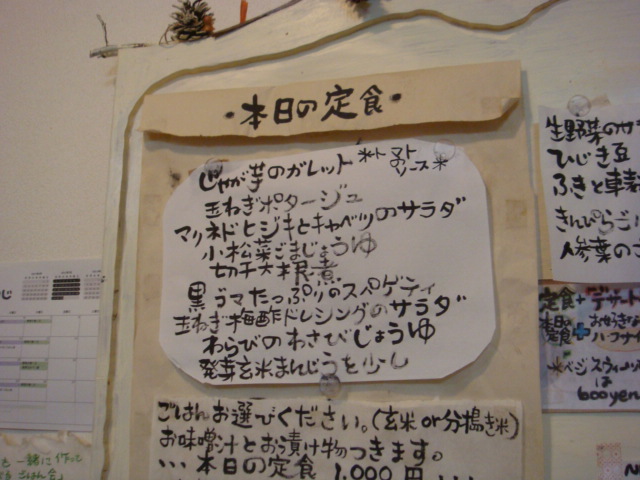 ・本日の定食・
じゃが芋のガレット ※トマトのソース※
玉ねぎポタージュ
マリネドヒジキとキャベツのサラダ
小松菜ごまじょうゆ
切干大根煮
黒ゴマたっぷりのスパゲティ
玉ねぎ梅酢ドレシングのサラダ
わらびのわさびじょうゆ
発芽玄米まんじうを少し
ごはんお選びください。(玄米or分搗き米)
お味噌汁とお漬け物つきます。
・・・本日の定食 1,000円・・・
生野菜のサ
ひじき豆
ふきと車麩
きんぴらゴ
人参葉の
定食+デザート
は
600yen
も 一緒に作って